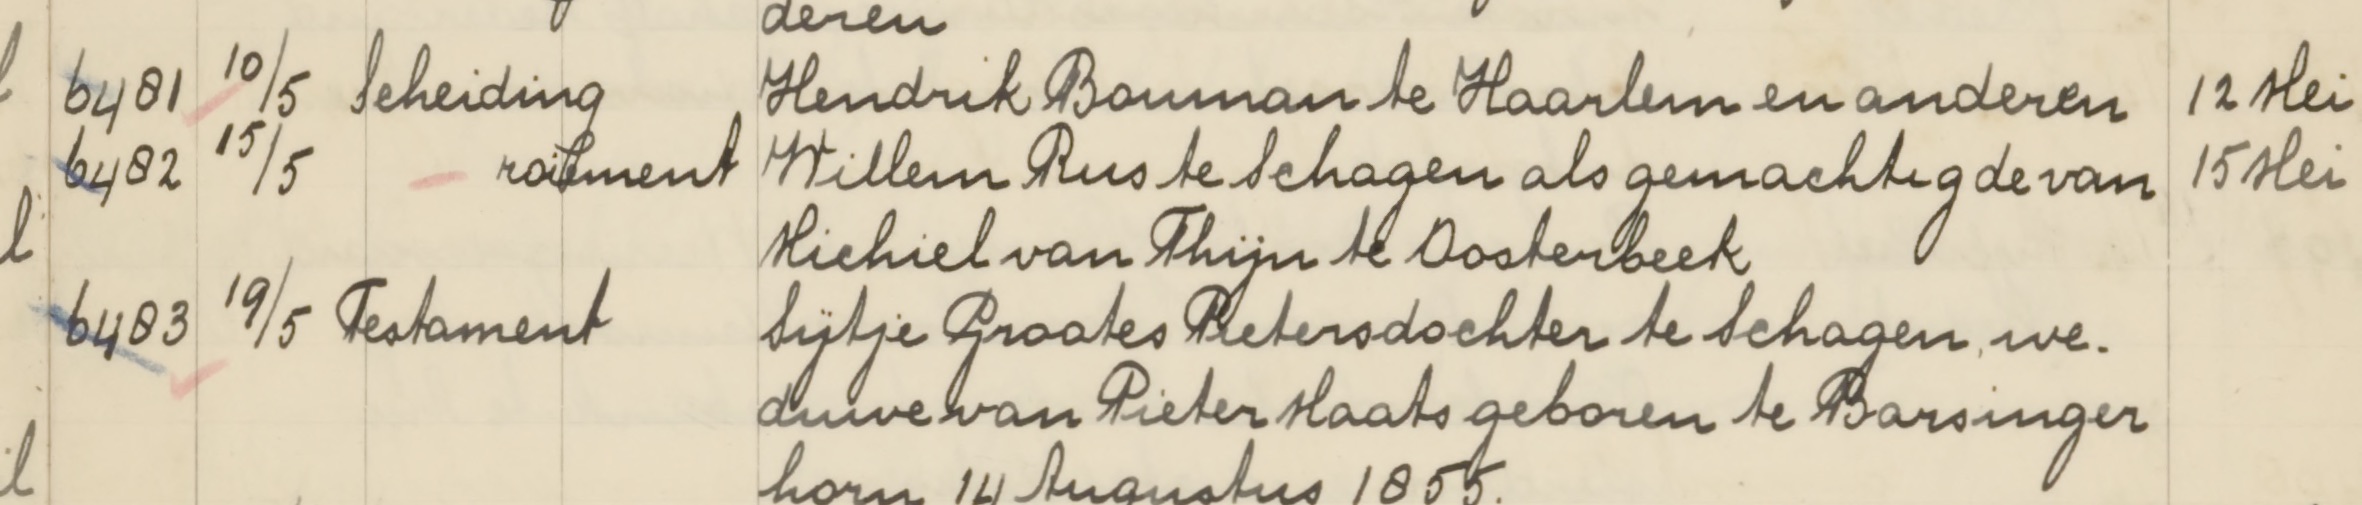 deren
6481 10/5 Scheiding Hendrik Bouman te Haarlem en anderen 12 Mei
6482 15/5 roiement Willem Rus te Schagen als gemachtigde van 15 Mei
Michiel van Thijn te Oosterbeek
6483 19/5 Testament Sijtje Groates Pietersdochter te Schagen, we-
duwe van Pieter Maats geboren te Barsinger
horn 14 Augustus 1855.